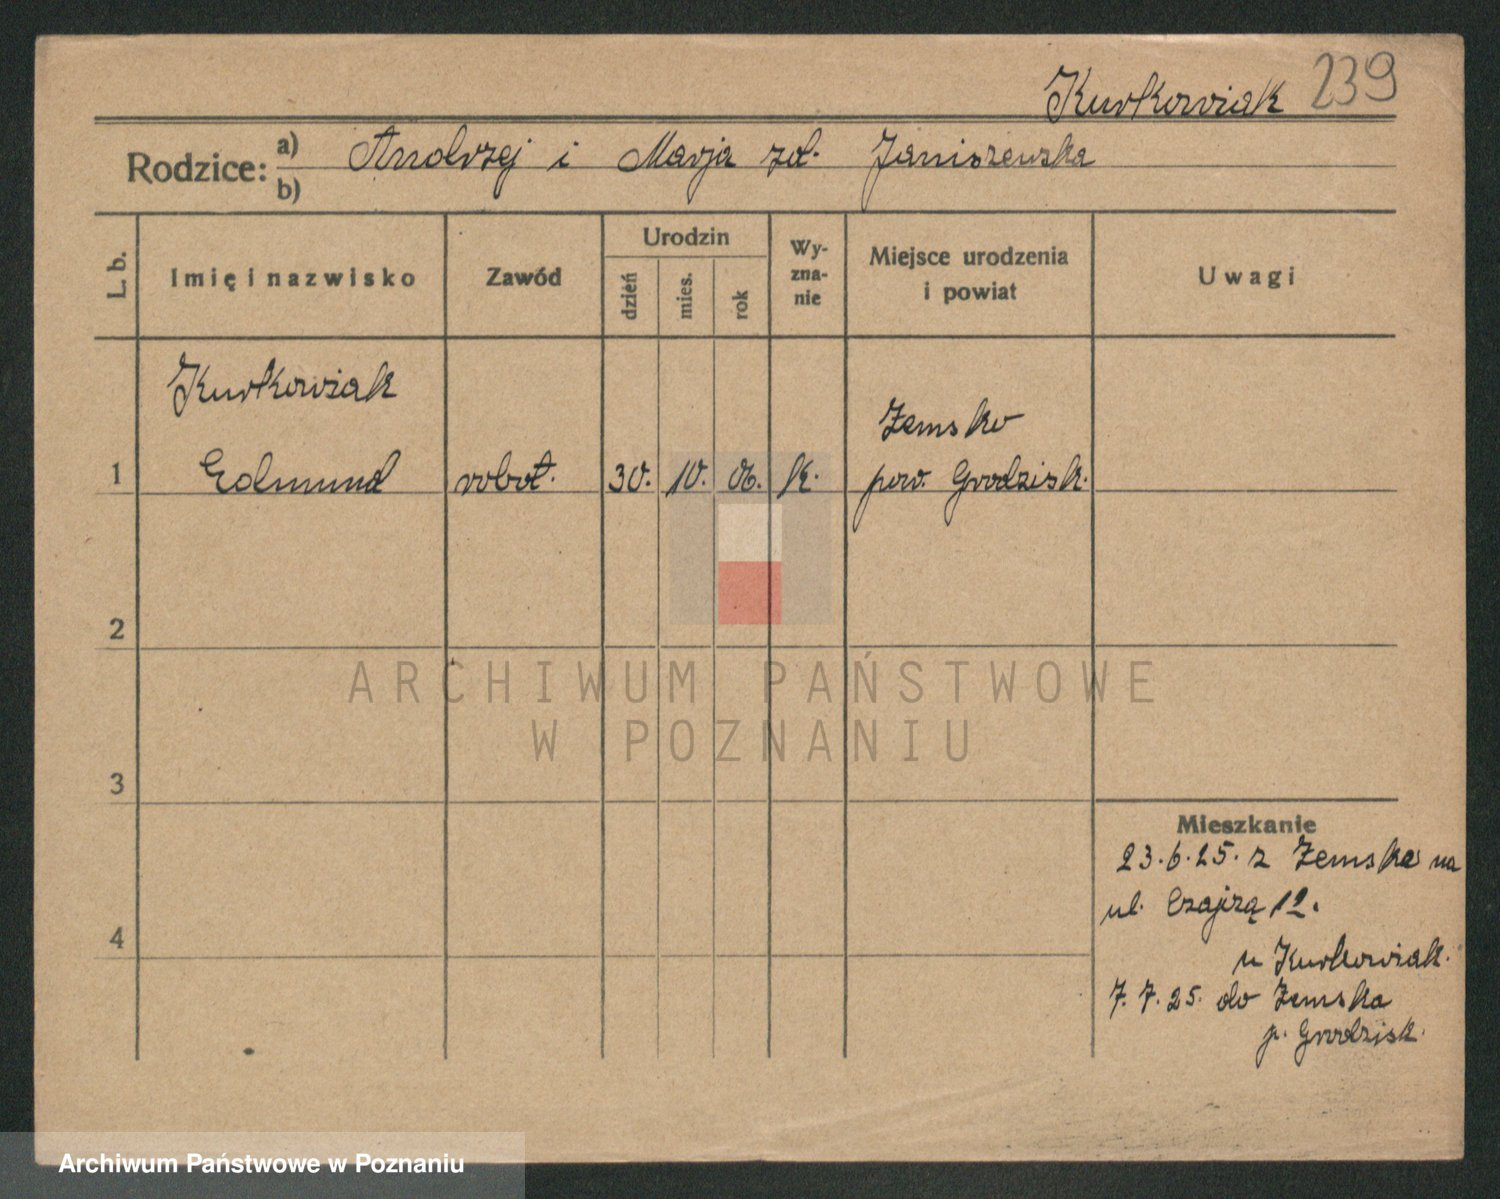 Kurkowiak 239
Rodzice: a) Andrzej i Marja zd. Janiszewska
b)
L. b. Imię i nazwisko Zawód Urodzin dzień mies. rok Wy-zna-nie Miejsce urodzenia i powiat Uwagi
Kurkowiak
Żemsko
1 Edmund robot. 30. 10. 06. k. pow. Grodzisk.
2
ARCHIWUM PAŃSTWOWE
W POZNANIU
3
Mieszkanie
23.6.25. z Żemska na
ul. Czajczą 12.
u Kurkowiak.
4
7.7.25. do Żemska
p. Grodzisk.
Archiwum Państwowe w Poznaniu